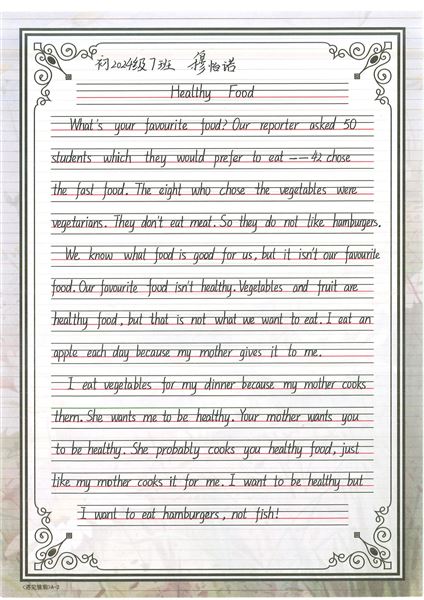 初2024级7班 穆怡诺
Healthy Food
What's your favourite food? Our reporter asked 50
students which they would prefer to eat —— 42 chose
the fast food. The eight who chose the vegetables were
vegetarians. They don't eat meat. So they do not like hamburgers.
We know what food is good for us, but it isn't our favourite
food. Our favourite food isn't healthy. Vegetables and fruit are
healthy food, but that is not what we want to eat. I eat an
apple each day because my mother gives it to me.
I eat vegetables for my dinner because my mother cooks
them. She wants me to be healthy. Your mother wants you
to be healthy. She probably cooks you healthy food, just
like my mother cooks it for me. I want to be healthy but
I want to eat hamburgers, not fish!